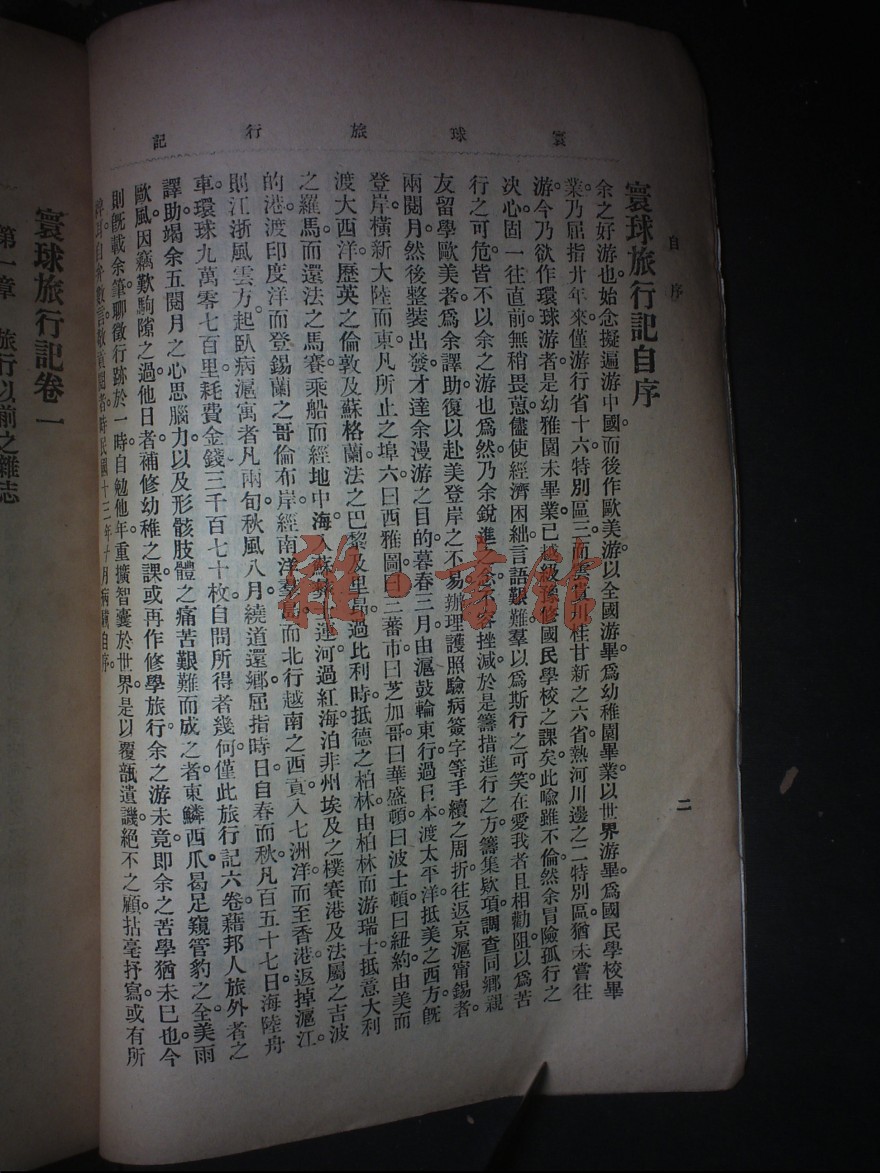 寰球旅行記
自序
二
寰球旅行記自序
余之好游也始念擬遍游中國。而後作歐美游。以全國游畢爲幼稚園畢業。以世界游畢。爲國民學校畢
業。乃屈指廿年來。僅游行省十六。特別區三。而雲貴川桂甘新之六省。熱河川邊之二特別區。猶未嘗往
游。今乃欲作環球游者。是幼雅園未畢業。已越級豫修國民學校之課矣。此喩雖不倫。然余冒險孤行之
决心。固一往直前。無稍畏葸。儘使經濟困絀。言語艱難。羣以爲斯行之可笑。在愛我者。且相勸阻。以爲苦
行之可危。皆不以余之游也爲然。乃余銳進之念。不容挫減。於是籌措進行之方。籌集欵項。調查同鄉親
友留學歐美者。爲余譯助。復以赴美登岸之不易。辦理護照驗病簽字等手續之周折。往返京滬甯錫者。
兩閱月。然後整裝出發。才達余漫游之目的。暮春三月。由滬鼓輪東行。過日本。渡太平洋。抵美之西方。旣
登岸。橫新大陸而東。凡所止之埠六。曰西雅圖。曰三蕃市。曰芝加哥。曰華盛頓。曰波士頓。曰紐約。由美而
渡大西洋。歷英之倫敦及蘇格蘭。法之巴黎及里昂。過比利時。抵德之柏林。由柏林而游瑞士。抵意大利
之羅馬。而還法之馬賽。乘船而經地中海。入蘇彝士運河。過紅海。泊非州埃及之樸賽港及法屬之吉波
的港。渡印度洋。而登錫蘭之哥倫布岸。經南洋羣島。而北行越南之西貢。入七洲洋。而至香港。返掉滬江。
則江浙風雲方起。臥病滬寓者凡兩旬。秋風八月。繞道還鄉。屈指時日。自春而秋。凡百五十七日。海陸舟
車。環球九萬零七百里。耗費金錢三千百七十枚。自問所得者幾何。僅此旅行記六卷。藉邦人旅外者之
譯助。竭余五閱月之心思腦力。以及形骸肢體之痛苦艱難而成之者。東鱗西爪。曷足窺管豹之全。美雨
歐風。因竊歎駒隙之過。他日者。補修幼稚之課。或再作修學旅行。余之游未竟。即余之苦學猶未已也。今
則旣載余筆。聊徵行跡於一時。自勉他年。重擴智囊於世界。是以覆瓿遺譏。絕不之顧。拈毫抒寫。或有所
時民國十三年十月病癎自序。
寰球旅行記卷一
第一章　旅行以前之雜志
雜·書館